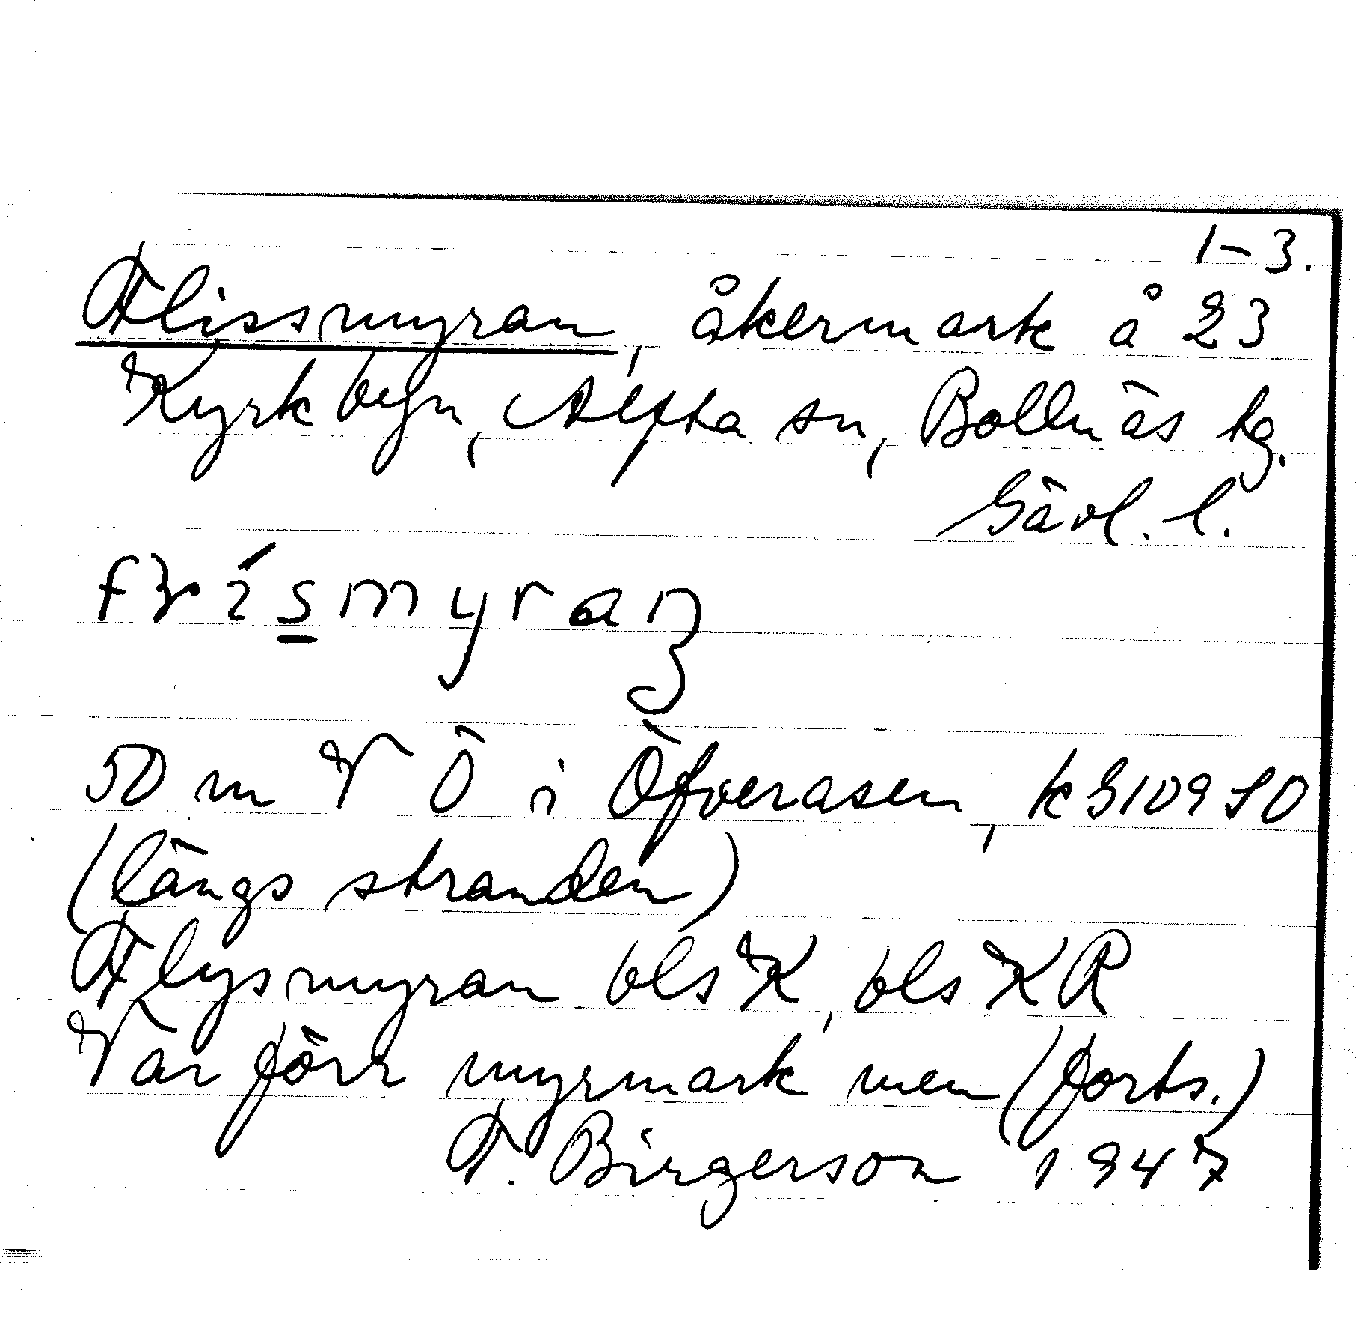 1-3.
Flissmyran, åkermark å 23
Kyrkbyn, Alfta sn, Bollnäs hg.
Gävl. l.
50 m V Ö i Öfverasen,
(längs stranden)
Flysmyran bls K, bls KR
Var förr myrmark men (forts.)
F. Birgerson 1947